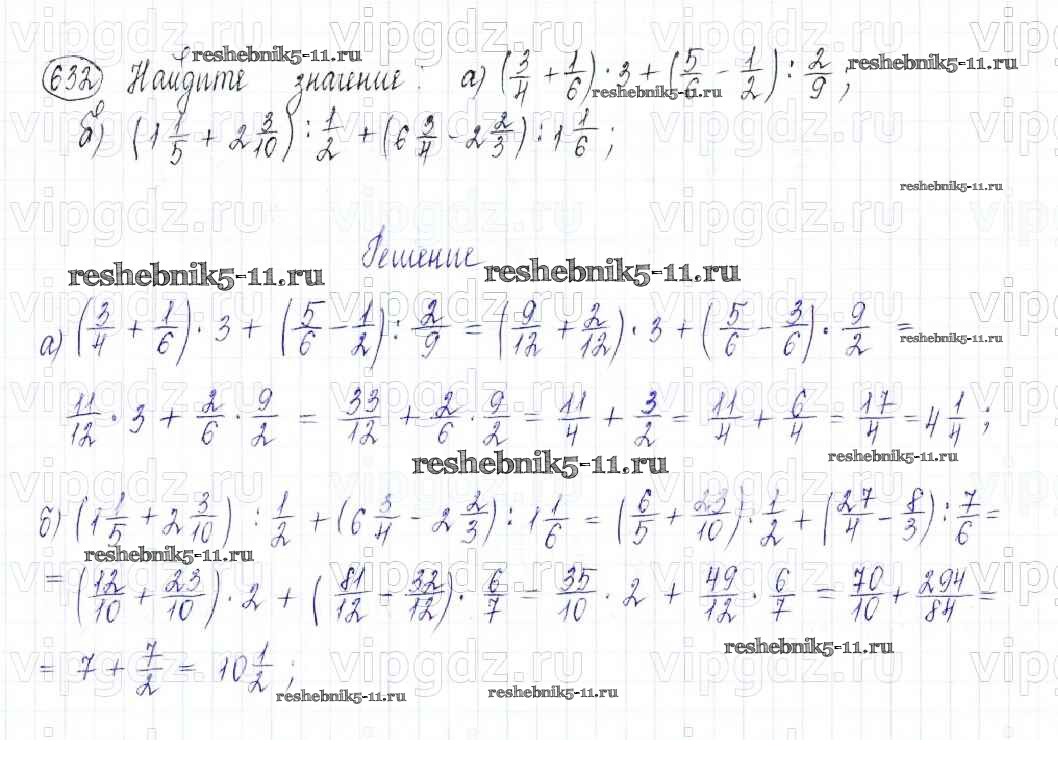 632 Найдите значение: а) (3/4 + 1/6) · 3 + (5/6 - 1/2) : 2/9;
б) (1 1/5 + 2 3/10) : 1/2 + (6 3/4 - 2 2/3) : 1 1/6;
Решение
а) (3/4 + 1/6) · 3 + (5/6 - 1/2) : 2/9 = (9/12 + 2/12) · 3 + (5/6 - 3/6) · 9/2 =
11/12 · 3 + 2/6 · 9/2 = 33/12 + 2/6 · 9/2 = 11/4 + 3/2 = 11/4 + 6/4 = 17/4 = 4 1/4;
б) (1 1/5 + 2 3/10) : 1/2 + (6 3/4 - 2 2/3) : 1 1/6 = (6/5 + 23/10) : 1/2 + (27/4 - 8/3) : 7/6 =
= (12/10 + 23/10) · 2 + (81/12 - 32/12) · 6/7 = 35/10 · 2 + 49/12 · 6/7 = 70/10 + 294/84 =
= 7 + 7/2 = 10 1/2;
reshebnik5-11.ru
vipgdz.ru